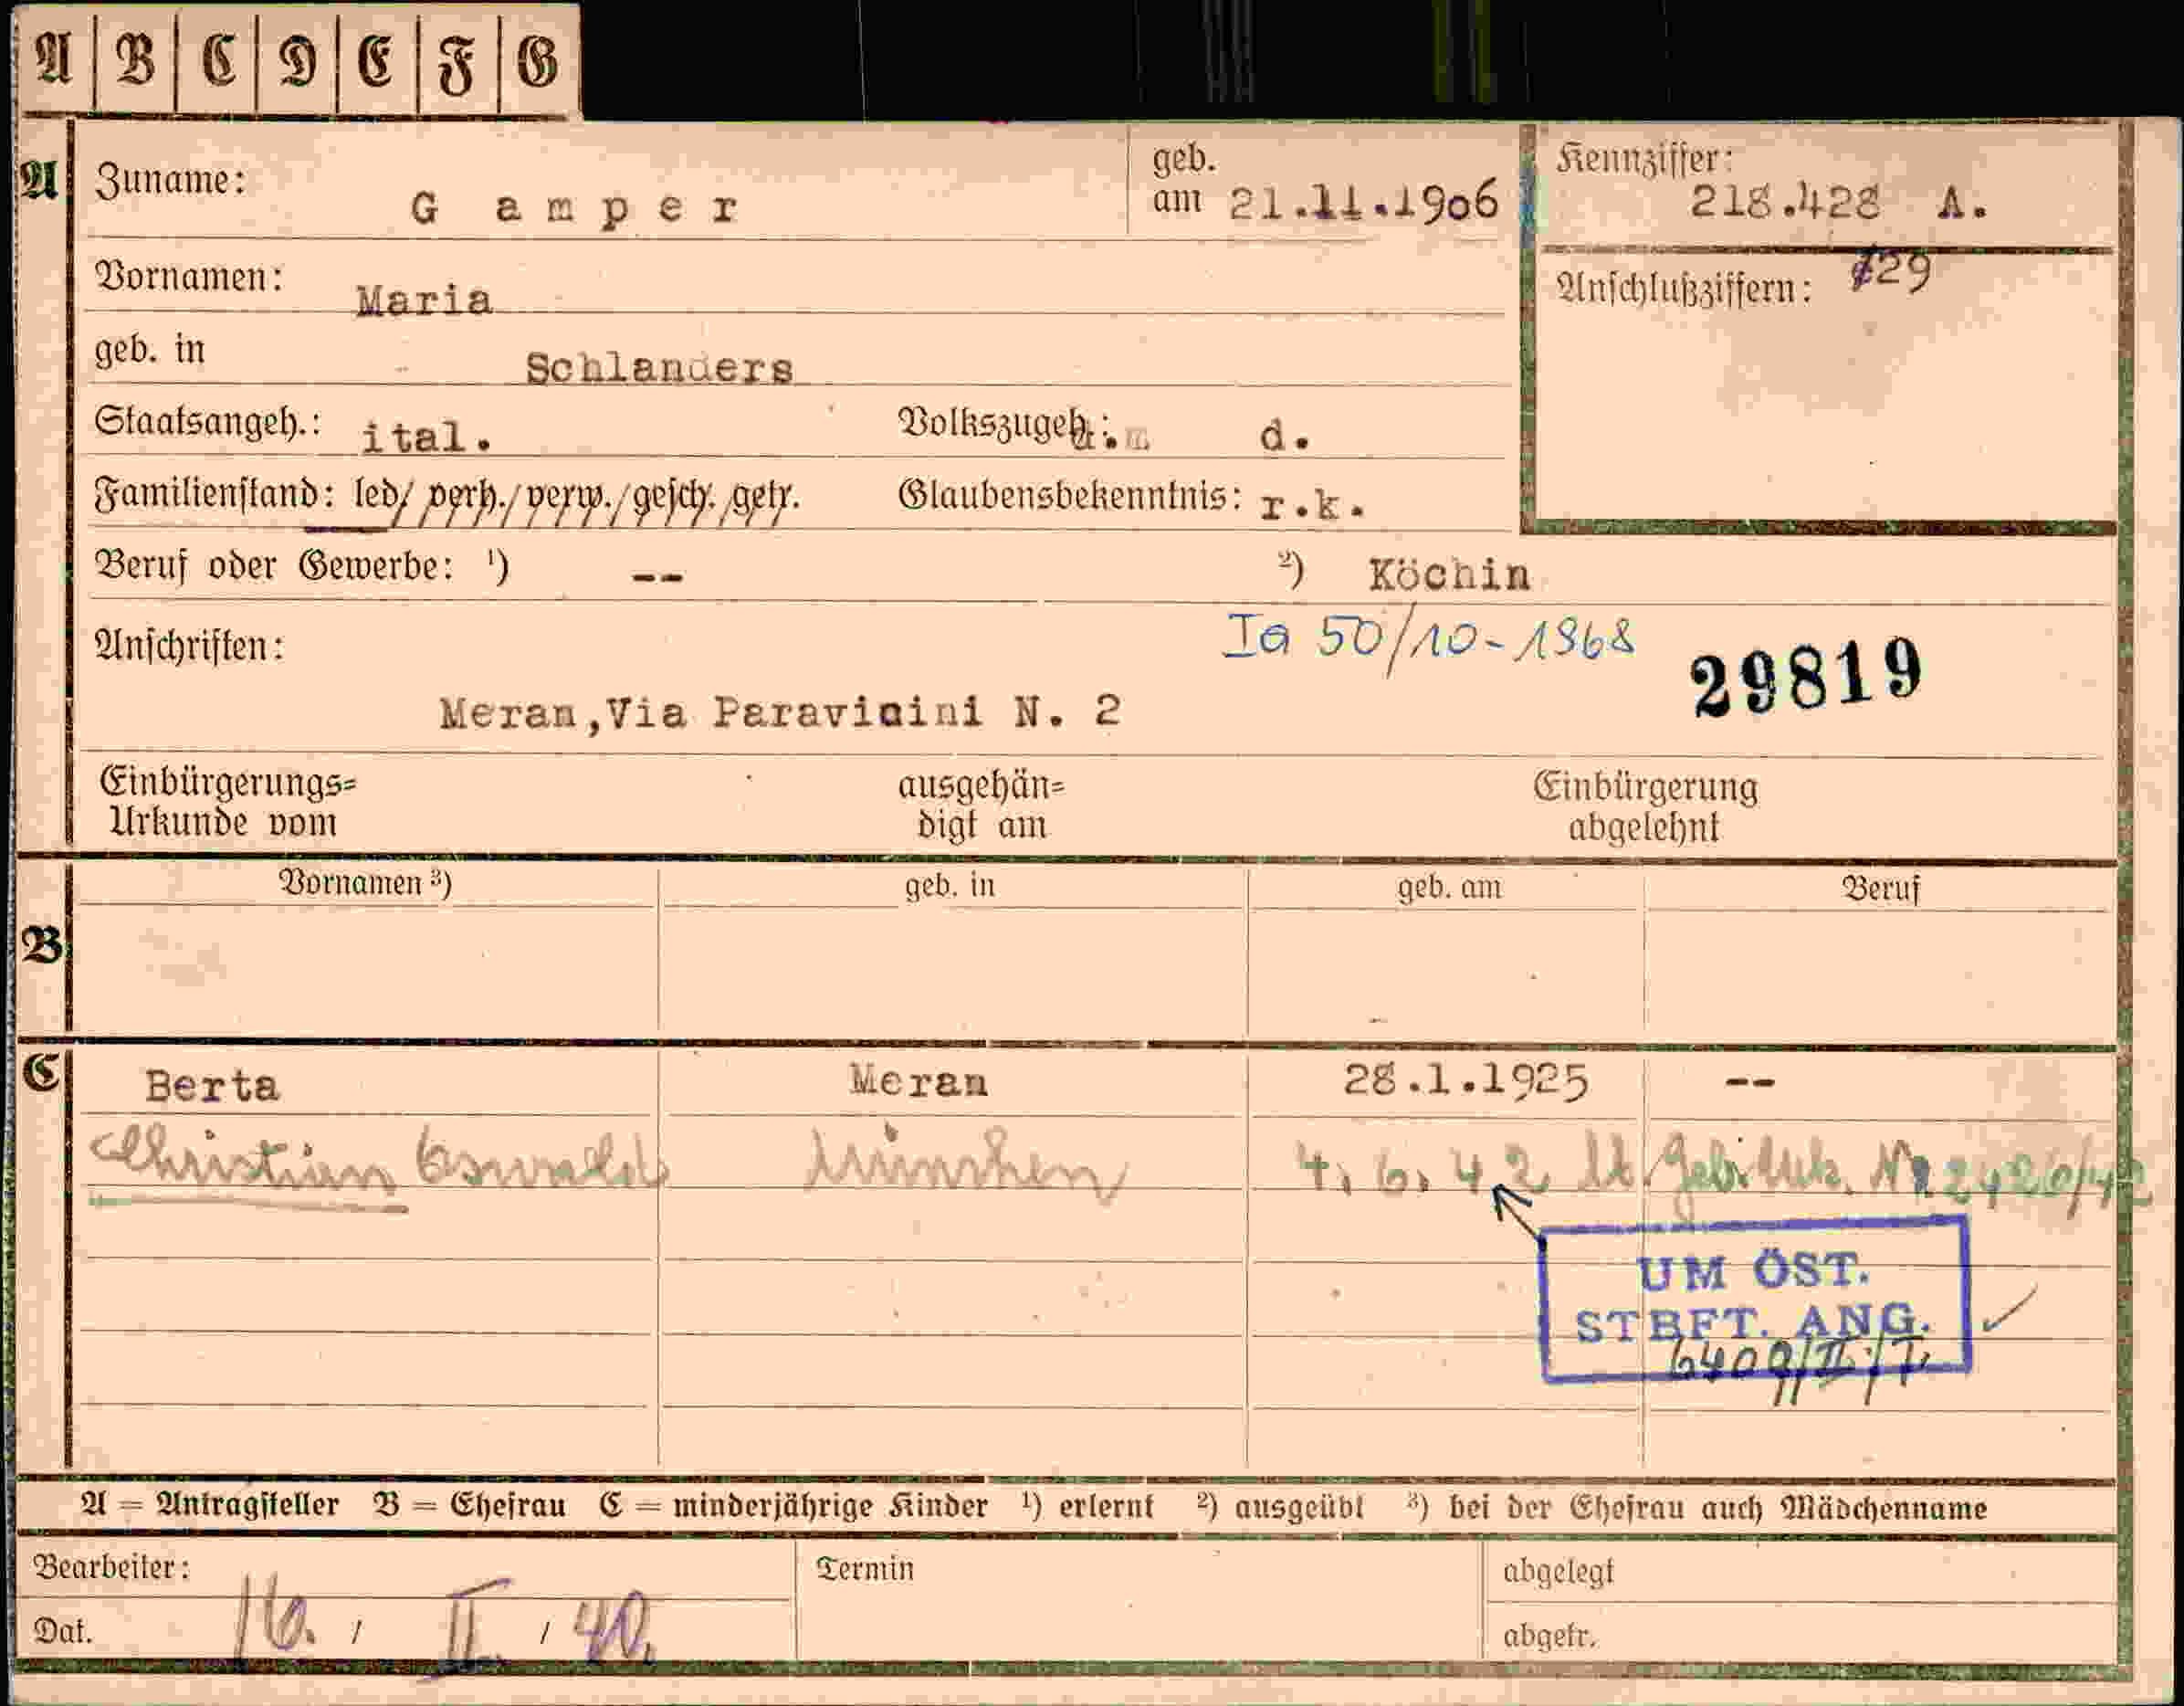 A B C D E F G
A Zuname: Gamper geb. am 21.11.1906 Kennziffer: 218.428 A.
Vornamen: Maria Anschlußziffern: 29
geb. in Schlanders
Staatsangeh.: ital. Volkszugeh.: d.
Familienstand: led/ verh./ verw./ gesch./ getr. Glaubensbekenntnis: r.k.
Beruf oder Gewerbe: 1) -- 2) Köchin
Anschriften: Ia 50/10-1968 29819
Meran,Via Paravicini N. 2
Einbürgerungs= ausgehän= Einbürgerung
Urkunde vom digt am abgelehnt
Vornamen 3) geb. in geb. am Beruf
B
C Berta Meran 28.1.1925 --
Christian Oswald München 4.6.42 lt. Geb. Urk. Nr 2420/42
UM ÖST.
STBFT. ANG.
6409/II/T.
A = Antragsteller B = Ehefrau C = minderjährige Kinder 1) erlernt 2) ausgeübt 3) bei der Ehefrau auch Mädchenname
Bearbeiter: Termin abgelegt
Dat. 16. / II. / 40. abgetr.